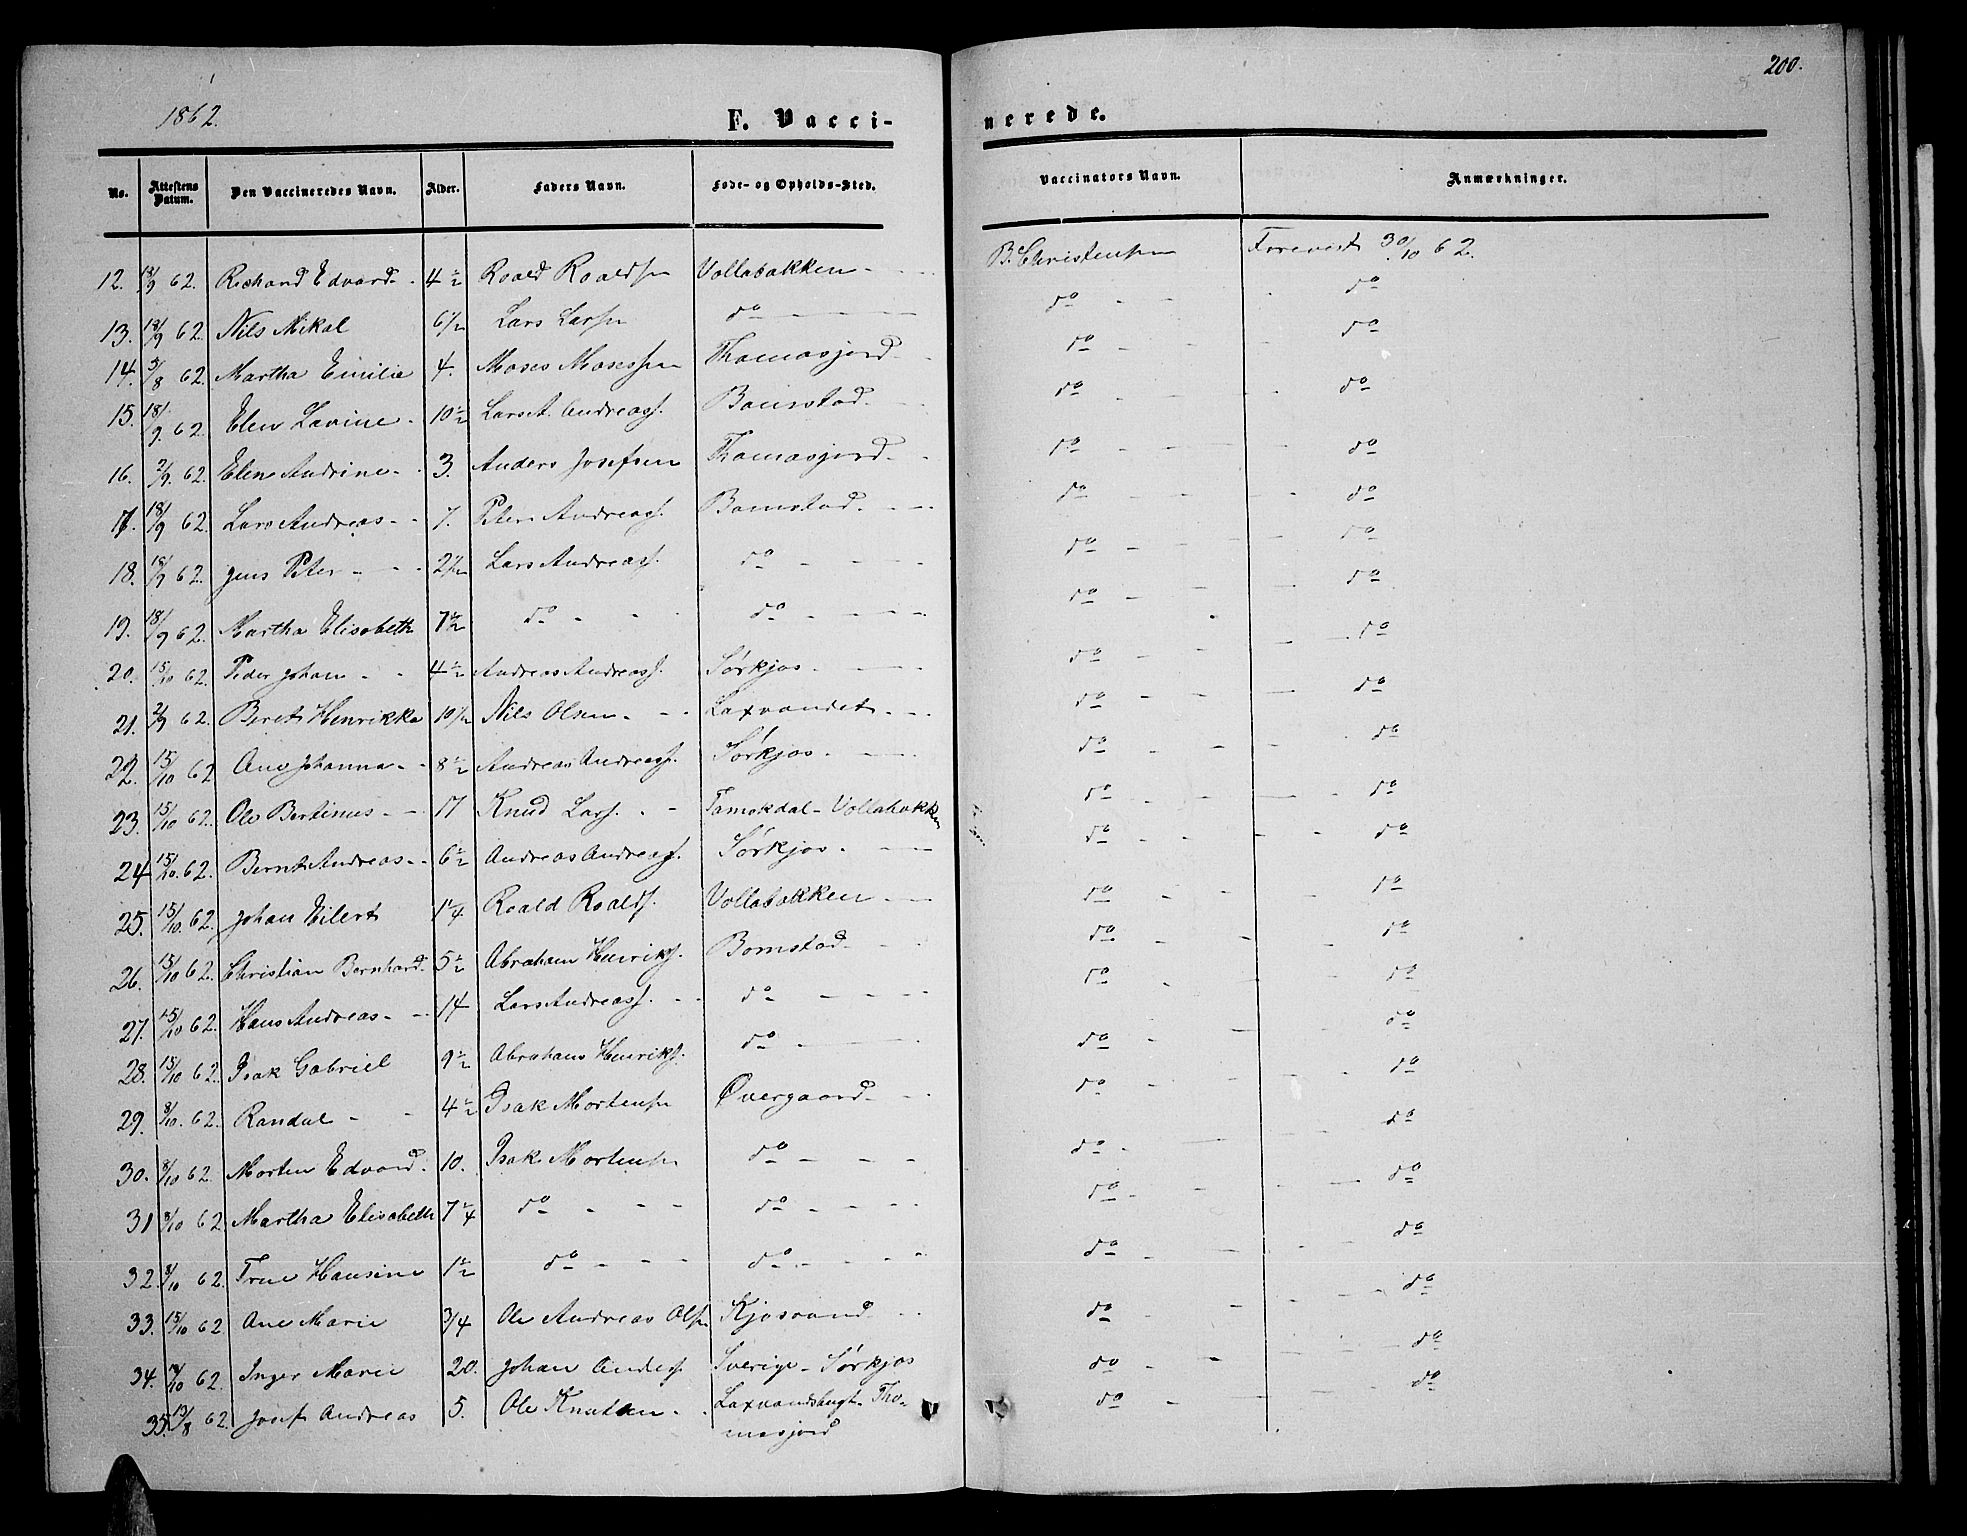 200.
1862.
F. Vacci-
nerede.
No. Attestens Datum. Den Vaccineredes Navn. Alder. Faders Navn. Føde- og Opholds-Sted. Vaccinators Navn. Anmærkninger.
12. 18/9 62. Richard Edvard - 4 1/2 Roald Roaldsen Vollabakken - B. Christensen Forevist 30/10 62.
13. 18/9 62. Nils Mikal 6 1/2 Lars Larsen do do do
14. 5/8 62. Martha Emilie 4. Moses Mosessen Thomasjord - do do
15. 18/9. 62 Elen Lavine - 10 1/2 Lars A. Andreass. Bomstad - do do
16. 2/9. 62. Elen Andrine - 3. Anders Josefsen Thomasjord - do do
17. 18/9 62. Lars Andreas - 7. Peter Andreass. Bomstad. - do do
18. 18/9 62. Jens Peter - 2 1/2 Lars Andreass. do do do
19. 18/9 62. Martha Elisabeth 7 1/2 do do do do
20. 15/10 62. Peder Johan - 4 1/2 Andreas Andreass. Sørkjos - do do
21. 2/9 62. Beret Henrikka 10 1/2 Nils Olsen - Laxvandet - do do
22. 15/10 62 Ane Johanna - 8 1/2 Andreas Andreass. Sørkjos - do do
23. 15/10 62. Ole Bertinus - 17 Knud Lars. - Tamokdal - Vollabakken do do
24 15/10. 62. Bernt Andreas - 6 1/2 Andreas Andreass. Sørkjos - do do
25. 15/10. 62. Johan Eilert 1 1/4 Roald Roalds. Vollabakken - do do
26. 15/10 62. Christian Bernhard. 5 1/2 Abraham Henriks. Bomstad - do do
27. 15/10 62. Hans Andreas - 14 Lars Andreass. - do do do
28. 15/10 62. Isak Gabriel 9 1/2 Abraham Henriks. do do do
29. 8/10. 62. Randal - 4 1/2 Isak Mortensen Øvergaard - do do
30. 8/10 62. Morten Edvard. 10. Isak Mortensen do do do
31 8/10 62. Martha Elisabeth 7 1/4 do do do do
32. 8/10 62. Trine Hansine 1 1/2 do do do do
33. 15/10 62. Ane Marie 3/4 Ole Andreas Olsen Kjosvand - do do
34. 62. Inger Marie 20. Johan Anders. Sverige - Sørkjos do do
35. 13/8 62. Josef Andreas 5. Ole Knutsen - Laxvandsbugt - Tho- do do
masjord